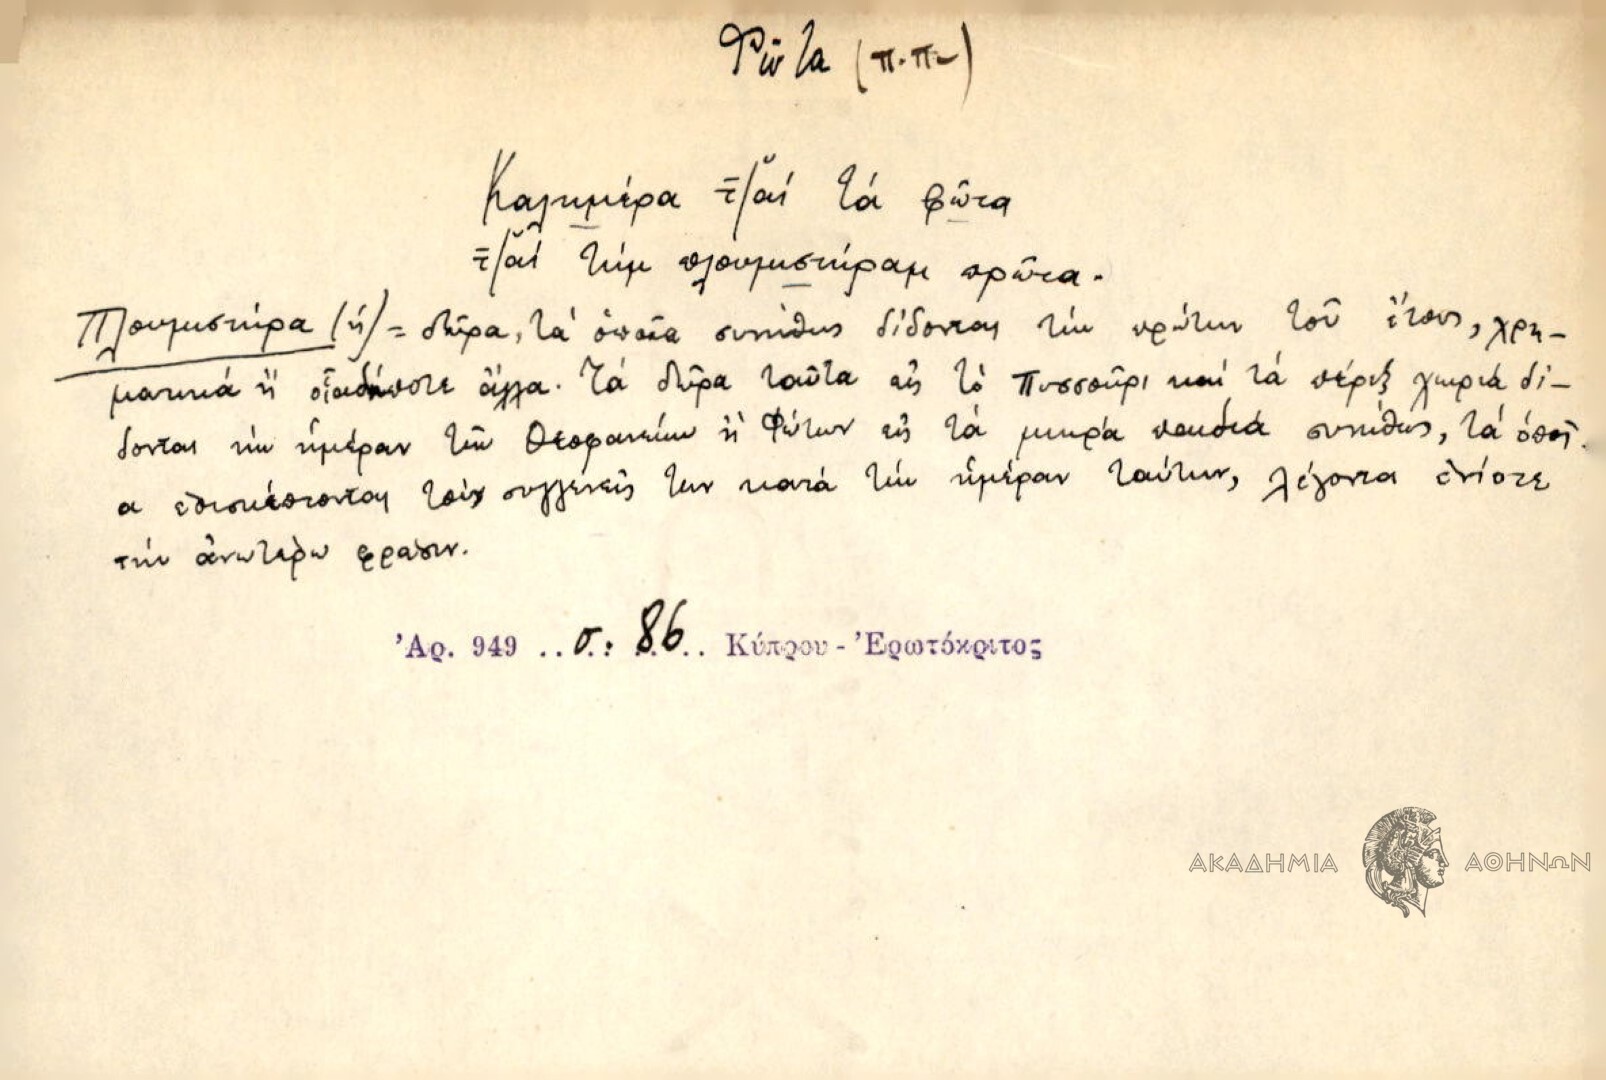 Φῶτα (π.π.)
Καλημέρα τ̌ζ̌αί τά φῶτα
τ̌ζ̌αί τήμ πλουμιστήραμ πρῶτα.
Πλουμιστήρα (ἡ) = δῶρα, τά ὁποῖα συνήθως δίδονται τήν πρώτην τοῦ ἔτους, χρη-
ματικά ἤ οἱαδήποτε ἄλλα. Τά δῶρα ταῦτα εἰς τό Πισσοῦρι καί τά πέριξ χωριά δί-
δονται τήν ἡμέραν τῶν Θεοφανείων ἤ Φώτων εἰς τά μικρά παιδιά συνήθως, τά ὁποῖ-
α ἐπισκέπτονται τούς συγγενεῖς των κατά τήν ἡμέραν ταύτην, λέγοντα ἐνίοτε
τήν ἀνωτέρω φράσιν.
Ἀρ. 949 ..σ: 86.. Κύπρου - Ἐρωτόκριτος
ΑΚΑΔΗΜΙΑ ΑΘΗΝΩΝ